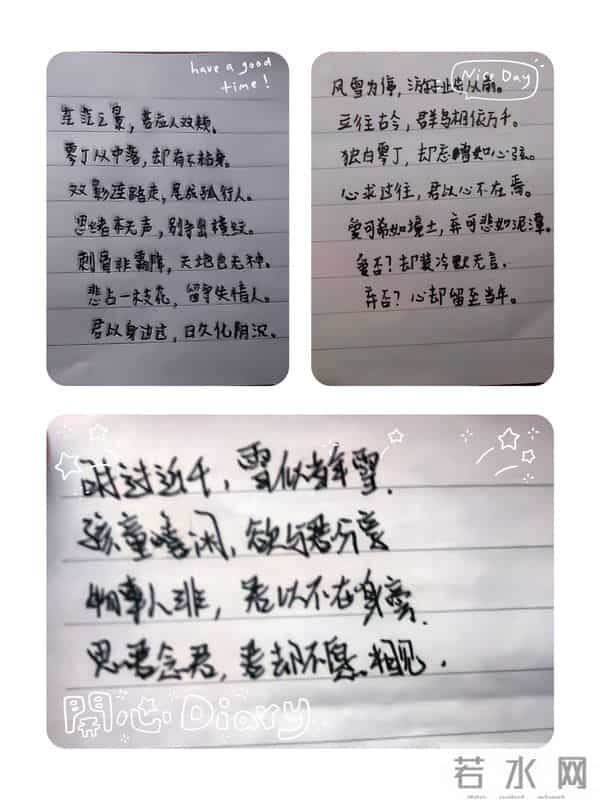 have a good
time!
茫茫之景，善应人欢颜。
零丁从中落，却有不粘身。
双影连路走，尾成孤行人。
思绪本无声，别字出横纹。
刺骨非霜降，天地自无神。
悲占一枝花，留守失情人。
君以身边过，日久化阴沉。
Nice Day
风雪为停，游好业步从前。
立往古今，群鸟相依万千。
独白零丁，却忘情如心弦。
心求过往，君以心不在焉。
爱可希如境土，弃可悲如泥潭。
爱否？却装冷默无言，
弃否？心却留至当年。
时过近千，雪似当年雪.
孩童嘻闲，欲与君分享
物事人非，君以不在身旁.
思君念君，君却不愿相见.
開心Diary
若水网